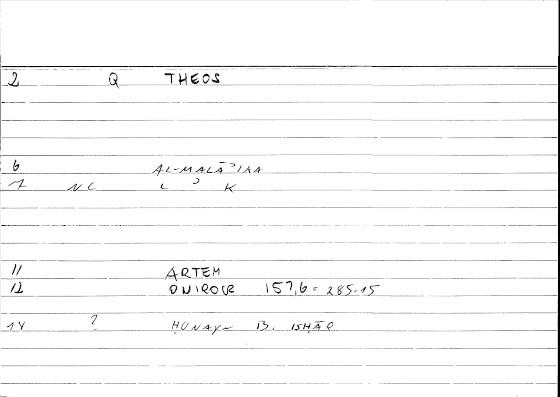 2 Q THEOS
6 AL-MALĀʾIKA
7 NC L ʾ K
11 ARTEM
12 ONIROCR 157,6 = 285.15
14 ? ḤUNAYN B. ISḤĀQ